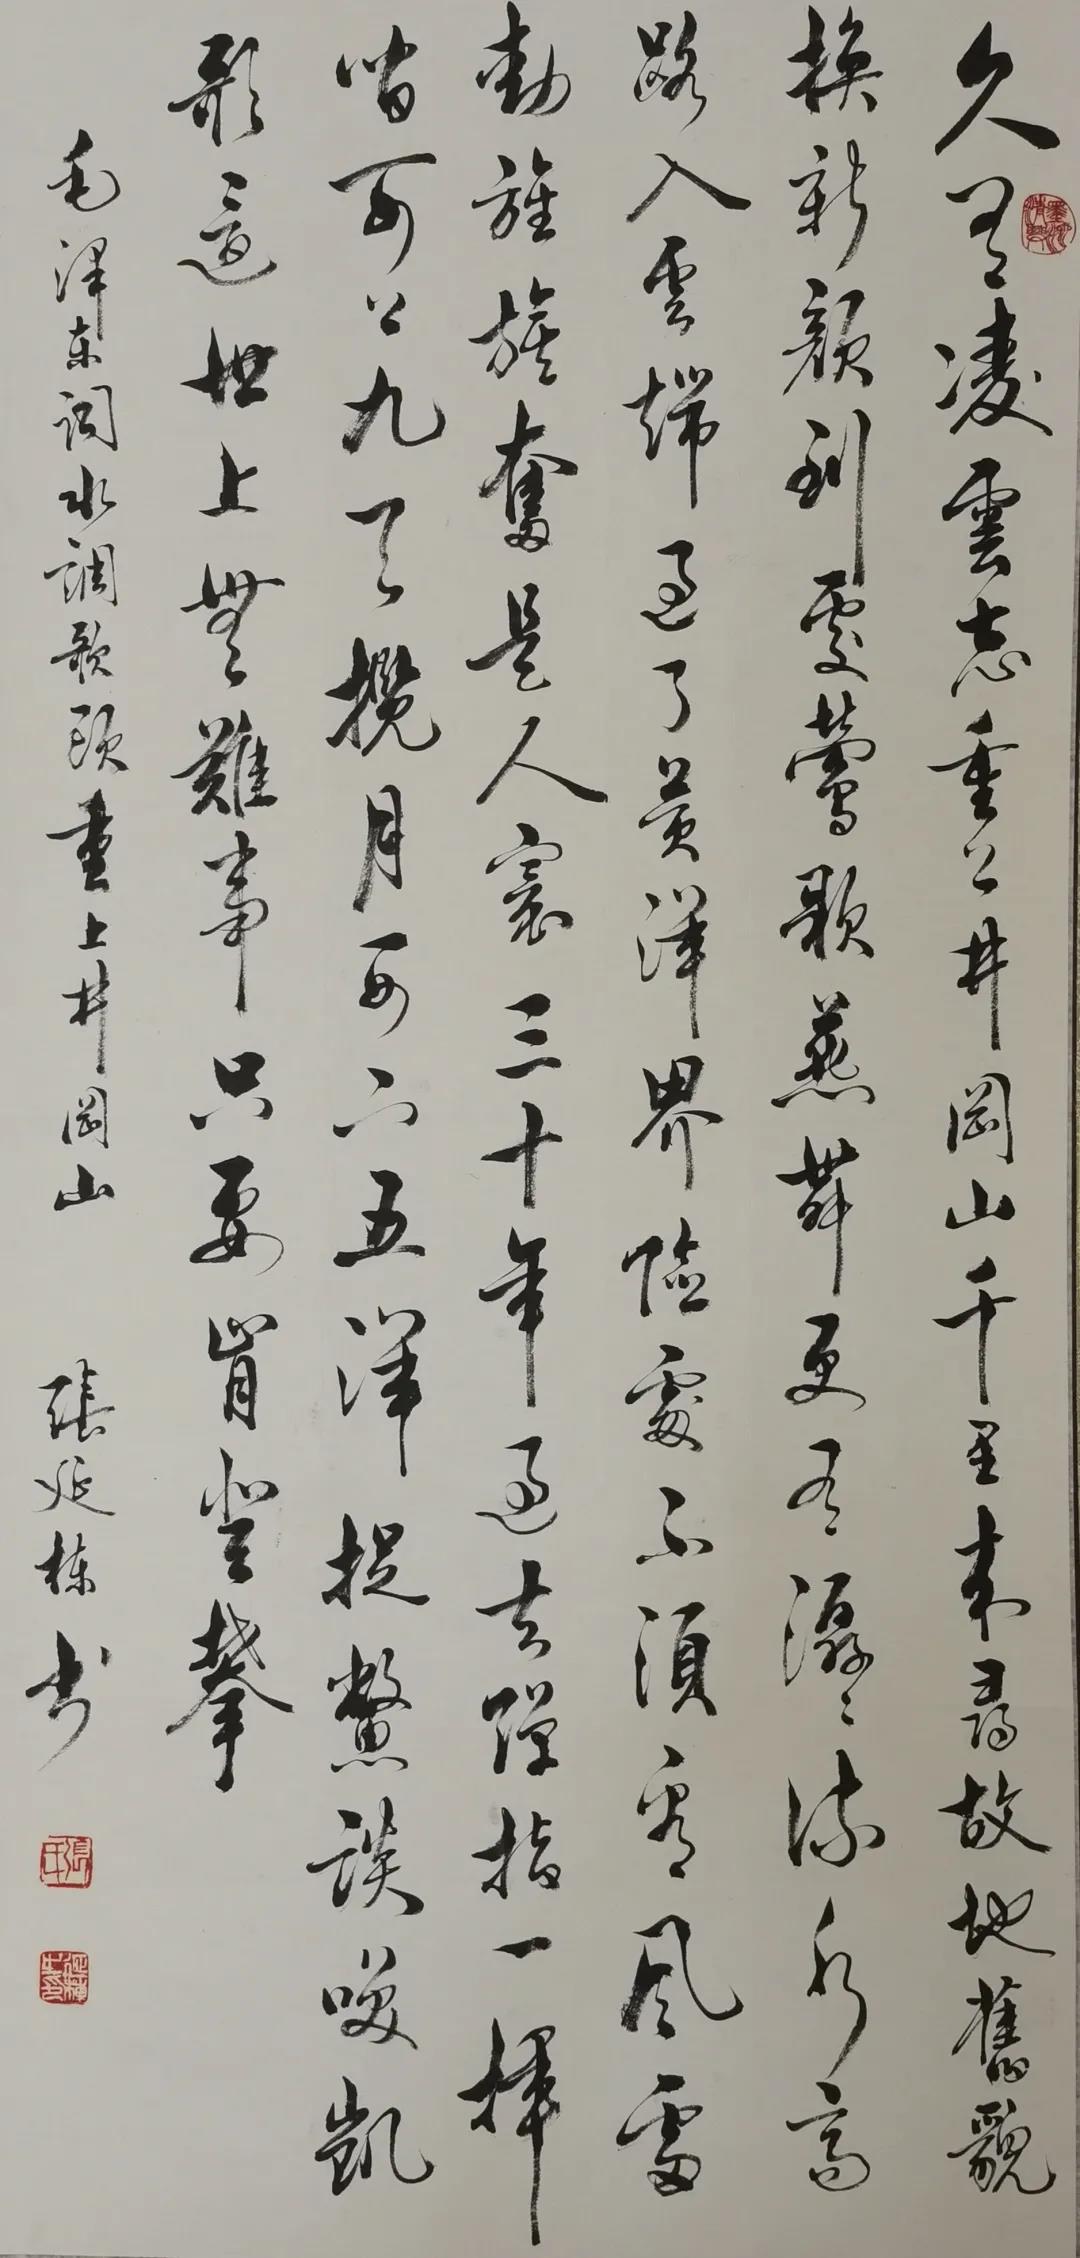 久有凌雲志重上井岡山千里来尋故地舊貌
換新顏到處鶯歌燕舞更有潺〻流水高
路入雲端過了黃洋界險處不須看風雷
動旌旗奮是人寰三十年過去彈指一揮
間可上九天攬月可下五洋捉鱉談咲凱
歌還世上無難事只要肯登攀
毛泽东詞水調歌頭重上井岡山 張延栋书